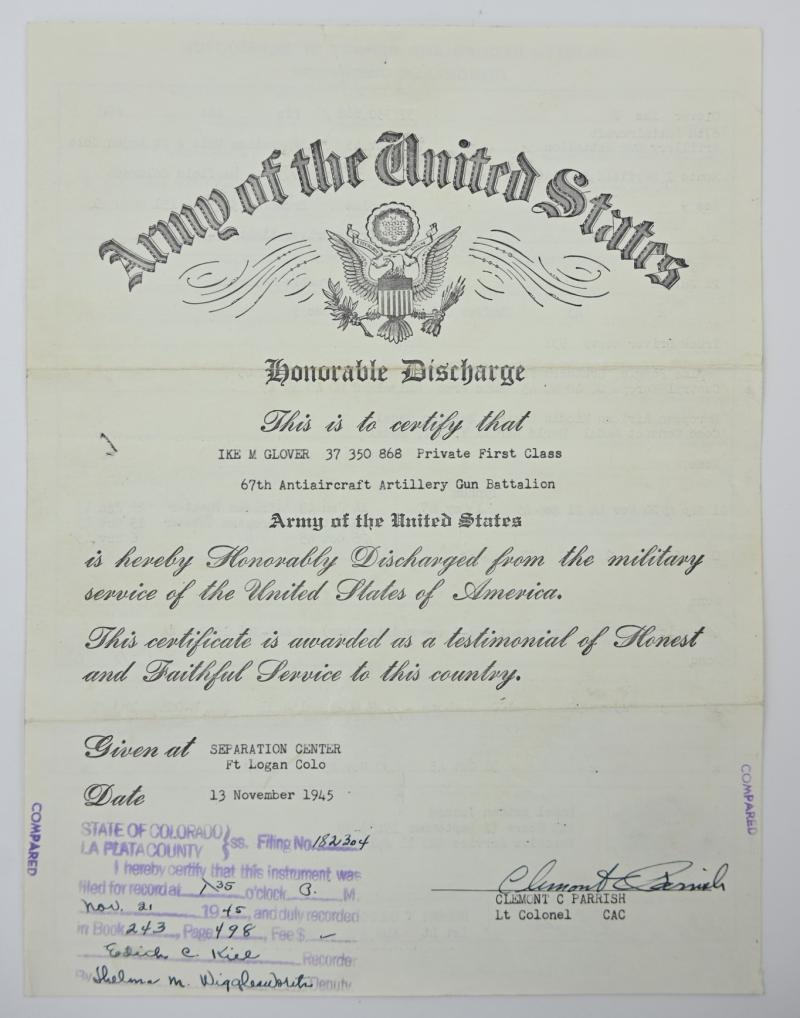 Army of the United States
Honorable Discharge
This is to certify that
IKE M GLOVER 37 350 868 Private First Class
67th Antiaircraft Artillery Gun Battalion
Army of the United States
is hereby Honorably Discharged from the military
service of the United States of America.
This certificate is awarded as a testimonial of Honest
and Faithful Service to this country.
Given at SEPARATION CENTER
Ft Logan Colo
Date 13 November 1945
COMPARED
COMPARED
STATE OF COLORADO
LA PLATA COUNTY } ss. Filing No. 182304
I hereby certify that this instrument was
filed for record at 1:35 o'clock P. M.
Nov. 21 1945, and duly recorded
in Book 243, Page 498, Fee $ –
C. Kiel Recorder
By Thelma M. Wigglesworth Deputy
Clemont C Parrish
CLEMONT C PARRISH
Lt Colonel CAC